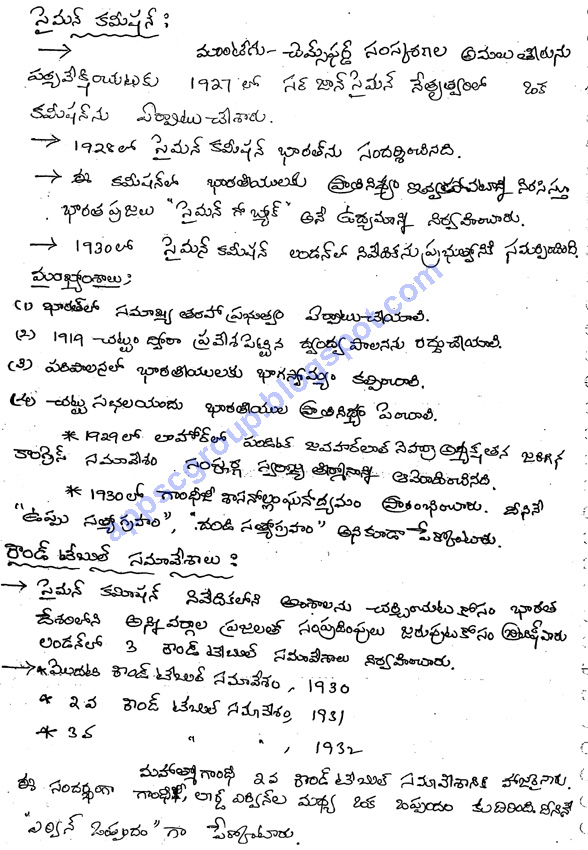 సైమన్ కమీషన్ :
→ మాంటెగు - చెమ్స్‌ఫర్డ్ సంస్కరణల అమలు తీరును
పర్యవేక్షించుటకు 1927 లో సర్ జాన్ సైమన్ నేతృత్వంలో ఒక
కమీషన్‌ను ఏర్పాటు చేశారు.
→ 1928లో సైమన్ కమీషన్ భారత్‌ను సందర్శించినది.
→ ఈ కమీషన్‌లో భారతీయులకు ప్రాతినిధ్యం ఇవ్వకపోవటాన్ని నిరసిస్తూ
భారత ప్రజలు "సైమన్ గో బ్యాక్" అనే ఉద్యమాన్ని నిర్వహించారు.
→ 1930లో సైమన్ కమీషన్ లండన్‌లో నివేదికను ప్రభుత్వానికి సమర్పించింది
ముఖ్యాంశాలు :
(1) భారత్‌లో సమాఖ్య తరహా ప్రభుత్వం ఏర్పాటుచేయాలి.
(2) 1919 చట్టం ద్వారా ప్రవేశపెట్టిన ద్వంద్వ పాలనను రద్దుచేయాలి.
(3) పరిపాలనలో భారతీయులకు భాగస్వామ్యం కల్పించాలి.
(4) చట్టసభలయందు భారతీయుల ప్రాతినిధ్యం పెంచాలి.
* 1929లో లాహోర్‌లో పండిట్ జవహర్‌లాల్ నెహ్రూ అధ్యక్షతన జరిగిన
కాంగ్రెస్ సమావేశం సంపూర్ణ స్వరాజ్య తీర్మానాన్ని ఆమోదించినది.
* 1930లో గాంధీజీ శాసనోల్లంఘనోద్యమం ప్రారంభించారు. దీనినే
"ఉప్పు సత్యాగ్రహం", "దండి సత్యాగ్రహం" అని కూడా పేర్కొంటారు.
రౌండ్ టేబుల్ సమావేశాలు :
→ సైమన్ కమీషన్ నివేదికలోని అంశాలను చర్చించుటకోసం భారత
దేశంలోని అన్ని వర్గాల ప్రజలతో సంప్రదింపులు జరుపుటకోసం బ్రిటీష్‌వారు
లండన్‌లో 3 రౌండ్ టేబుల్ సమావేశాలు నిర్వహించారు.
→ * మొదటి రౌండ్ టేబుల్ సమావేశం, 1930
* 2వ రౌండ్ టేబుల్ సమావేశం, 1931
* 3వ " ", 1932
మహాత్మాగాంధీ 2వ రౌండ్ టేబుల్ సమావేశానికి హాజరైనారు.
ఈ సందర్భంగా గాంధీజీ, లార్డ్ ఇర్విన్‌ల మధ్య ఒక ఒప్పందం కుదిరింది. దీనినే
"ఇర్విన్ ఒప్పందం" గా పేర్కొంటారు.
appscgroup.blogspot.com